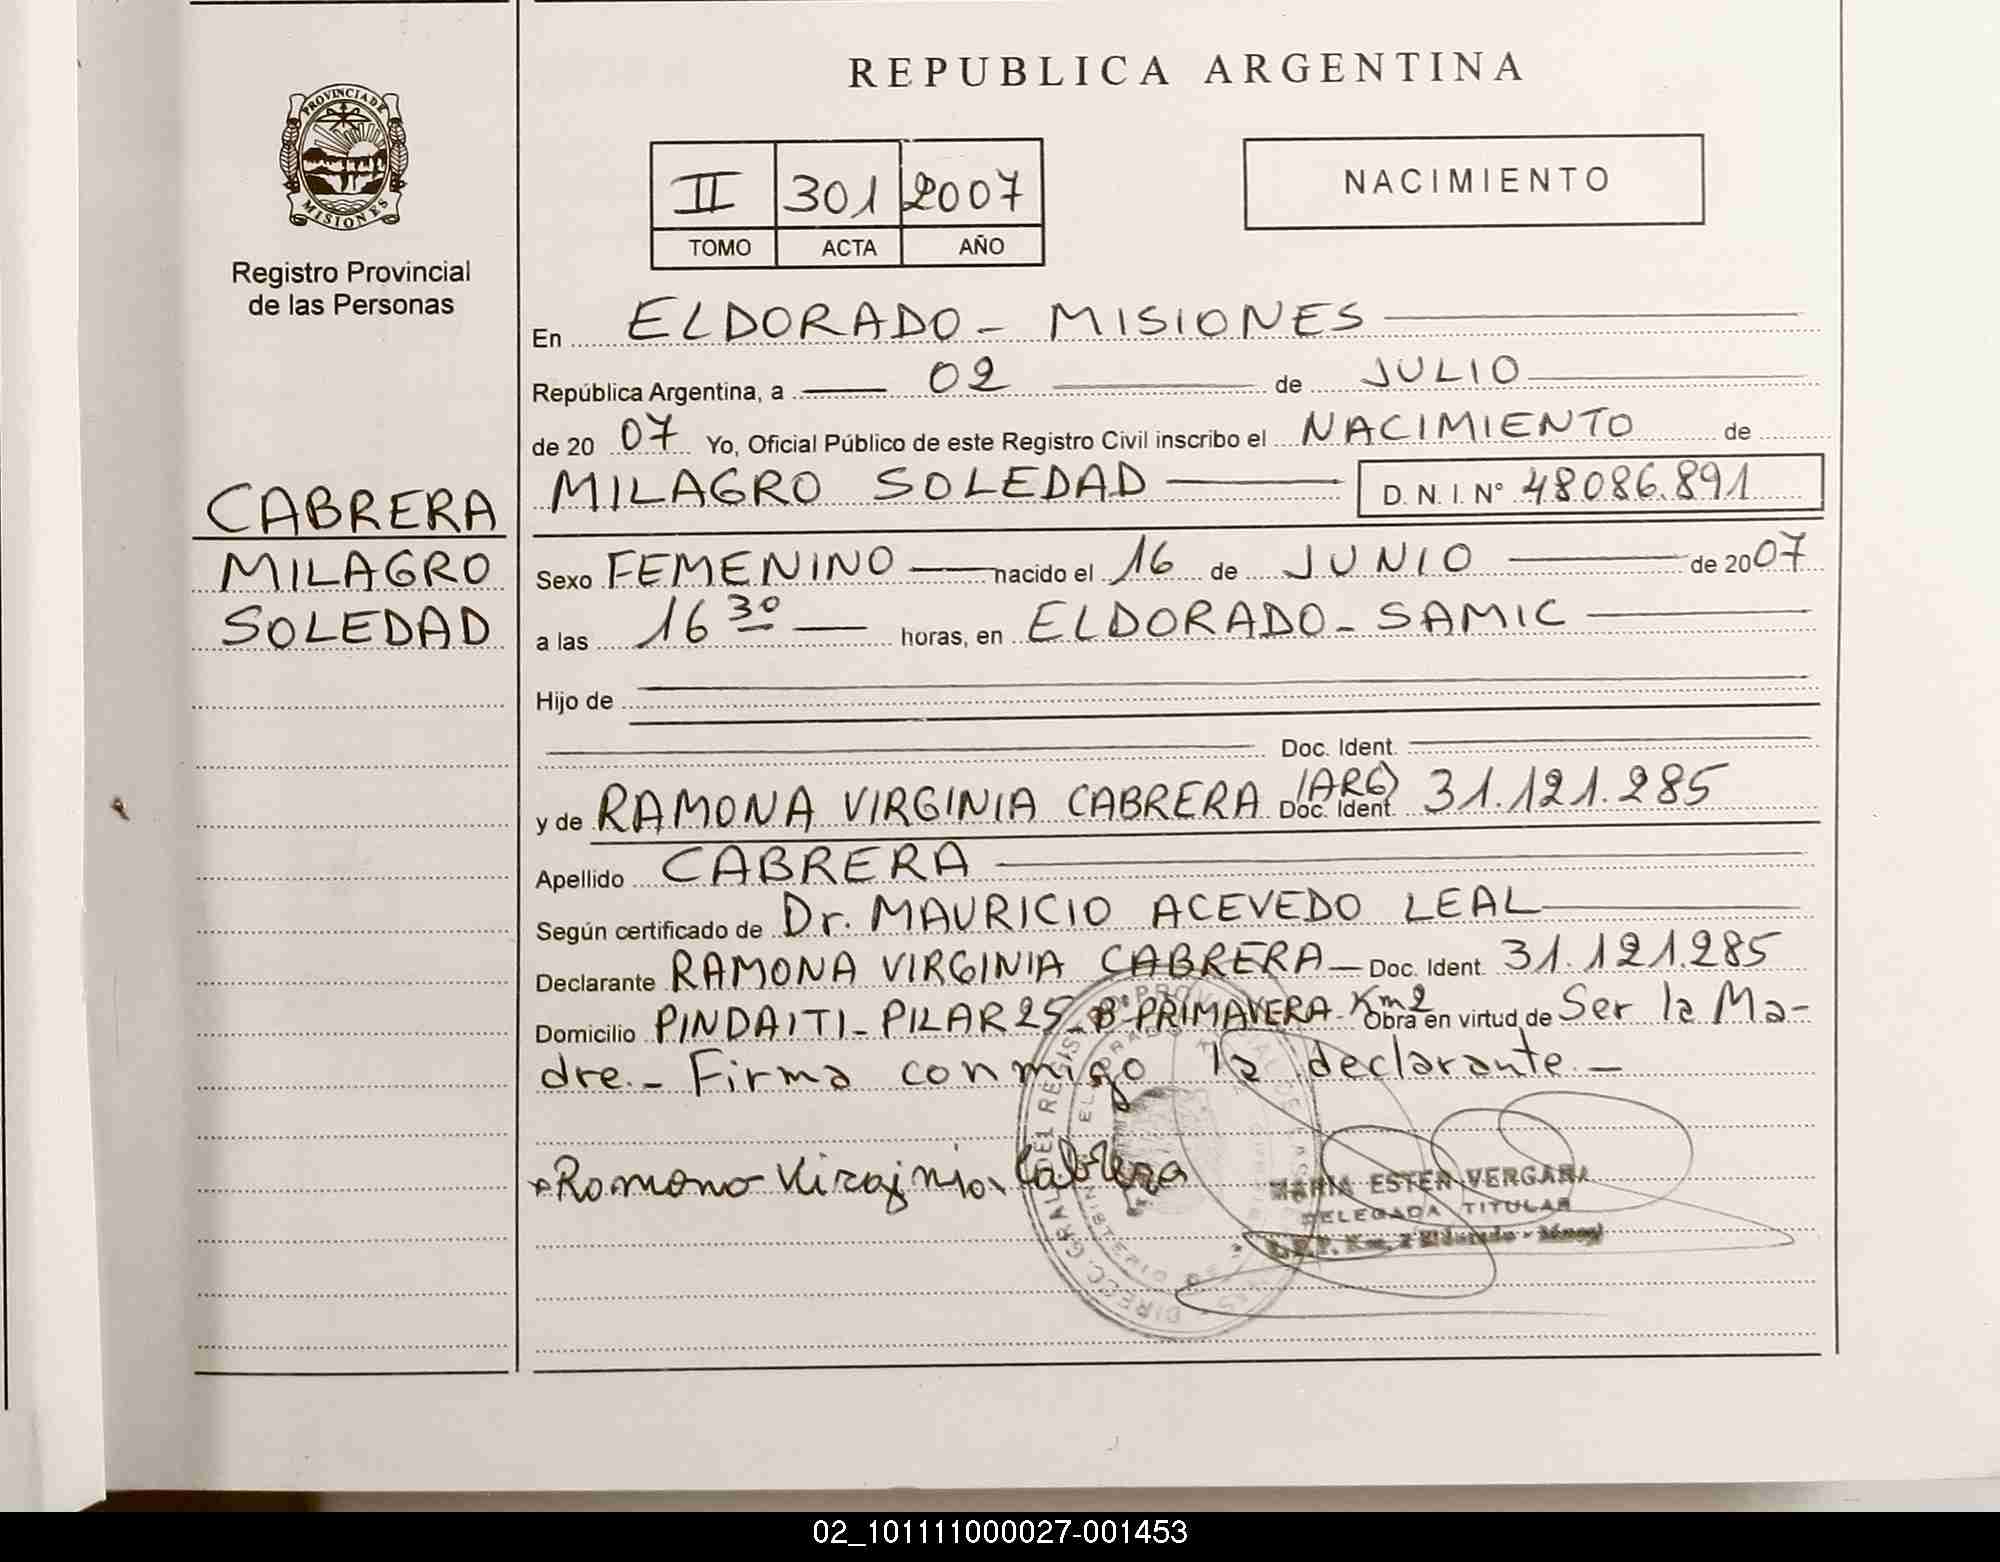 PROVINCIA DE
MISIONES
Registro Provincial
de las Personas
CABRERA
MILAGRO
SOLEDAD
REPUBLICA ARGENTINA
II 301 2007
TOMO ACTA AÑO
NACIMIENTO
En ELDORADO - MISIONES
República Argentina, a 02 de JULIO
de 20 07 Yo, Oficial Público de este Registro Civil inscribo el NACIMIENTO de
MILAGRO SOLEDAD D. N. I. N° 48086.891
Sexo FEMENINO nacido el 16 de JUNIO de 2007
a las 16 30 horas, en ELDORADO - SAMIC
Hijo de
Doc. Ident.
y de RAMONA VIRGINIA CABRERA Doc. Ident. (ARG) 31.121.285
Apellido CABRERA
Según certificado de Dr. MAURICIO ACEVEDO LEAL
Declarante RAMONA VIRGINIA CABRERA - Doc. Ident. 31.121.285
Domicilio PINDAITI - PILAR 25 - B° PRIMAVERA - Km2 Obra en virtud de Ser la Ma-
dre. - Firma conmigo la declarante. -
Ramona Virginia Cabrera
MARIA ESTER VERGARA
DELEGADA TITULAR
02_101111000027-001453